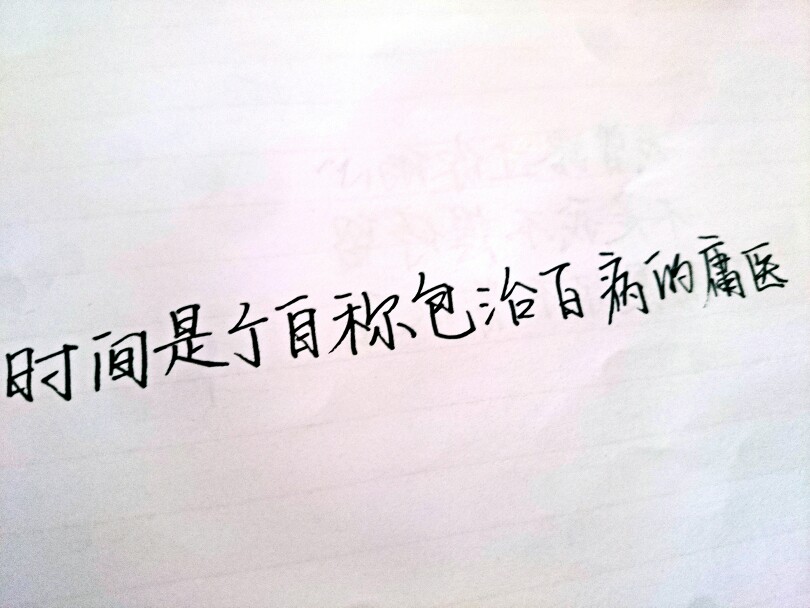 时间是个自称包治百病的庸医